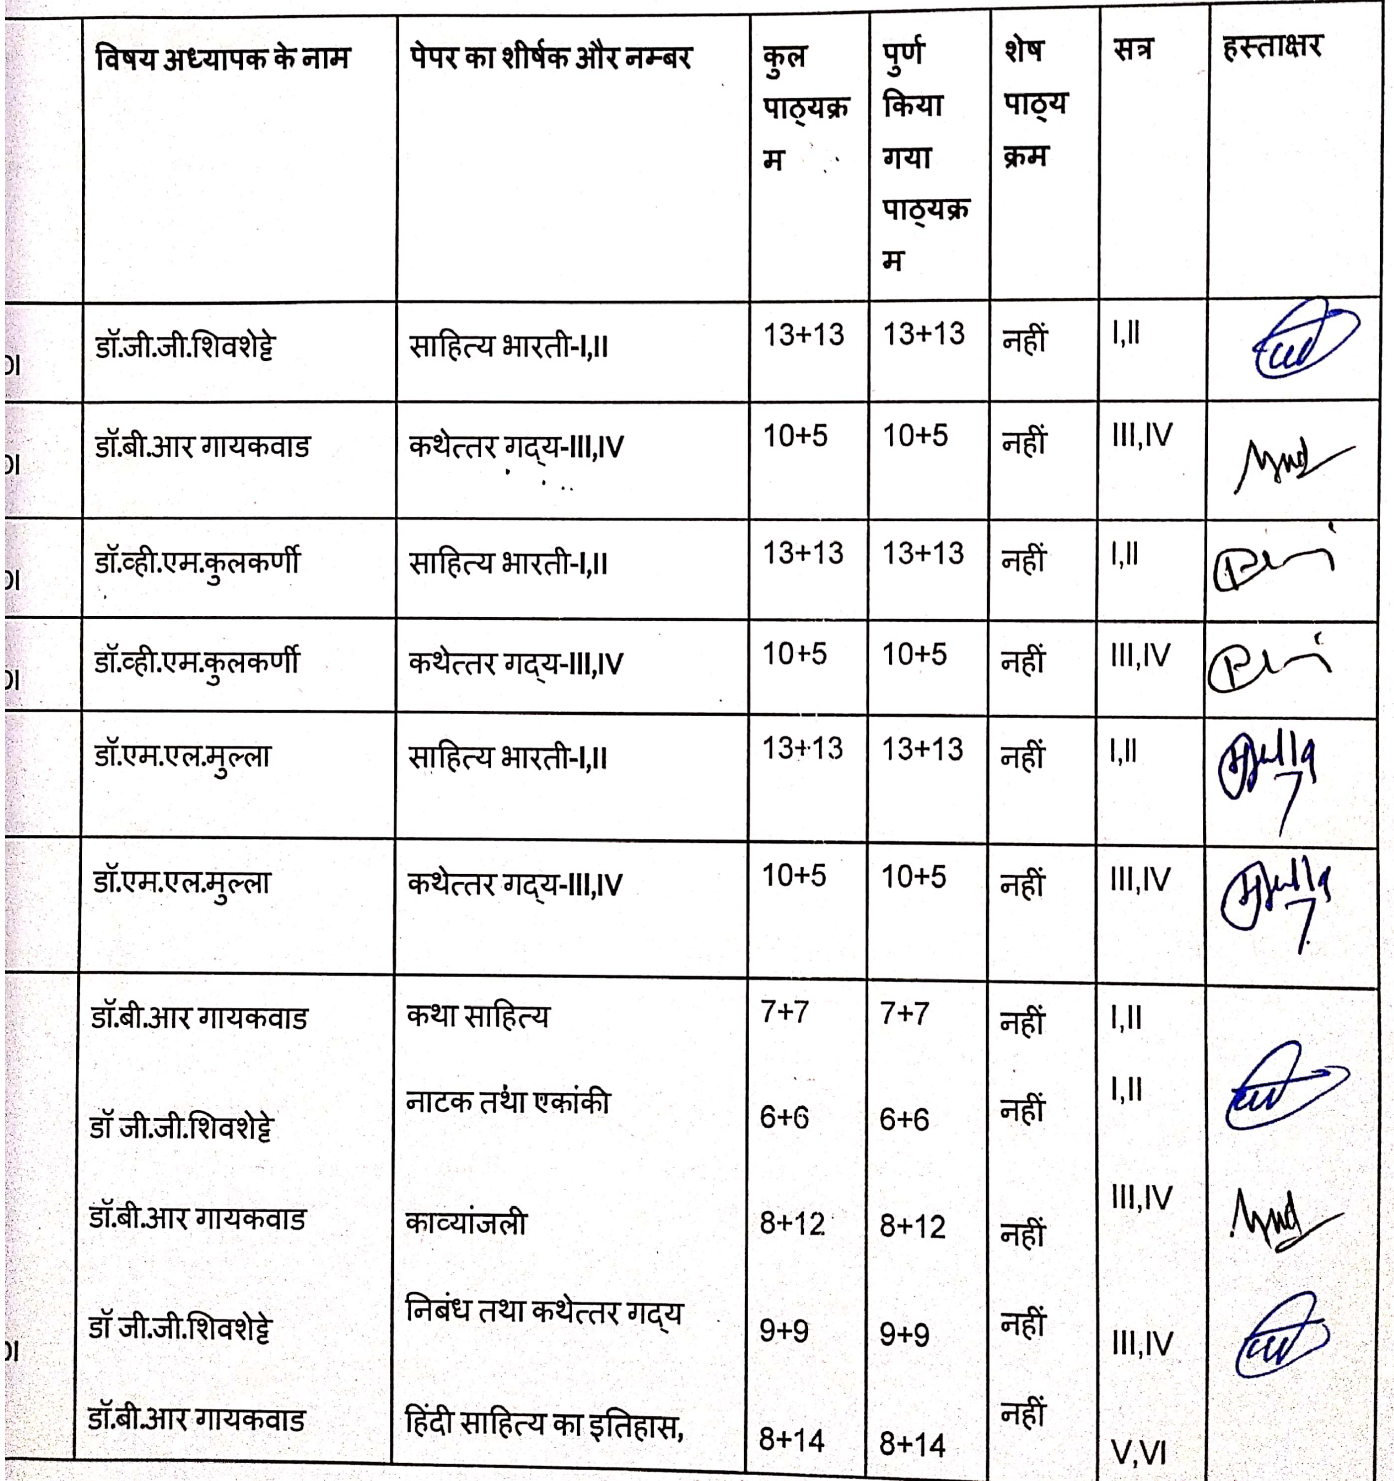 विषय अध्यापक के नाम पेपर का शीर्षक और नम्बर कुल पुर्ण शेष सत्र हस्ताक्षर
पाठ्यक्र किया पाठ्य
म गया क्रम
पाठ्यक्र
म
डॉ.जी.जी.शिवशेट्टे साहित्य भारती-I,II 13+13 13+13 नहीं I,II
DI
डॉ.बी.आर गायकवाड कथेत्तर गद्य-III,IV 10+5 10+5 नहीं III,IV
DI
डॉ.व्ही.एम.कुलकर्णी साहित्य भारती-I,II 13+13 13+13 नहीं I,II
DI
डॉ.व्ही.एम.कुलकर्णी कथेत्तर गद्य-III,IV 10+5 10+5 नहीं III,IV
DI
डॉ.एम.एल.मुल्ला साहित्य भारती-I,II 13+13 13+13 नहीं I,II
डॉ.एम.एल.मुल्ला कथेत्तर गद्य-III,IV 10+5 10+5 नहीं III,IV
डॉ.बी.आर गायकवाड कथा साहित्य 7+7 7+7 नहीं I,II
डॉ जी.जी.शिवशेट्टे नाटक तथा एकांकी 6+6 6+6 नहीं I,II
डॉ.बी.आर गायकवाड काव्यांजली 8+12 8+12 नहीं III,IV
डॉ जी.जी.शिवशेट्टे निबंध तथा कथेत्तर गद्य 9+9 9+9 नहीं III,IV
DI
डॉ.बी.आर गायकवाड हिंदी साहित्य का इतिहास, 8+14 8+14 नहीं V,VI